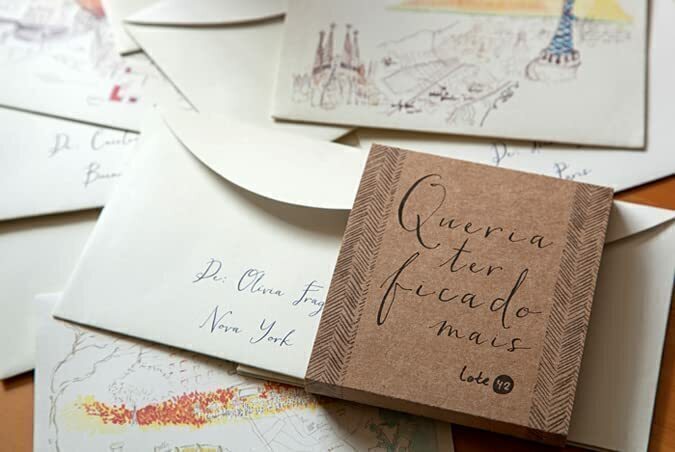 De: Carol
De:
Paris
De: Olivia Frag
Nova York
Queria
ter
ficado
mais
Lote 42